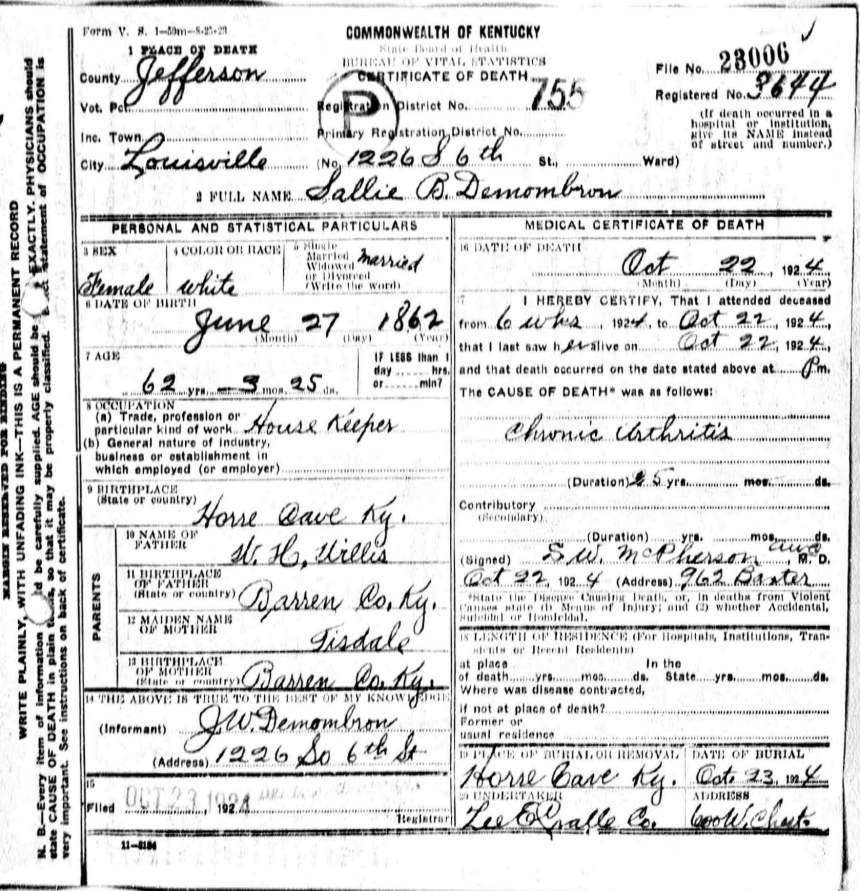 Form V. S. 1-50m-8-25-23
COMMONWEALTH OF KENTUCKY
State Board of Health
BUREAU OF VITAL STATISTICS
CERTIFICATE OF DEATH
File No. 23006
Registered No. 3644
(If death occurred in a
hospital or institution,
give its NAME instead
of street and number.)
1 PLACE OF DEATH
County Jefferson
Vot. Pct.
Registration District No. 755
P
Inc. Town
Primary Registration District No.
City Louisville (No. 1226 S 6th St., Ward)
2 FULL NAME Sallie B. Demombron
PERSONAL AND STATISTICAL PARTICULARS
3 SEX
Female
4 COLOR OR RACE
white
5 Single
Married
Widowed
or Divorced
(Write the word)
Married
6 DATE OF BIRTH
June 27 1862
(Month) (Day) (Year)
7 AGE
62 yrs. 3 mos. 25 ds.
IF LESS than 1
day hrs.
or min?
8 OCCUPATION
(a) Trade, profession or
particular kind of work House Keeper
(b) General nature of industry,
business or establishment in
which employed (or employer)
9 BIRTHPLACE
(State or country)
Horse Cave Ky.
PARENTS
10 NAME OF
FATHER
W. H. Willis
11 BIRTHPLACE
OF FATHER
(State or country) Barren Co. Ky.
12 MAIDEN NAME
OF MOTHER
Tisdale
13 BIRTHPLACE
OF MOTHER
(State or country) Barren Co. Ky.
14 THE ABOVE IS TRUE TO THE BEST OF MY KNOWLEDGE
(Informant) J.W. Demombron
(Address) 1226 So 6th St
15
Filed OCT 23 1924, 192
Registrar
11-3184
MEDICAL CERTIFICATE OF DEATH
16 DATE OF DEATH
Oct 22, 1924
(Month) (Day) (Year)
17 I HEREBY CERTIFY, That I attended deceased
from 6 wks, 1924, to Oct 22, 1924,
that I last saw her alive on Oct 22, 1924,
and that death occurred on the date stated above at P m.
The CAUSE OF DEATH* was as follows:
Chronic Arthritis
(Duration) 25 yrs. mos. ds.
Contributory
(Secondary)
(Duration) yrs. mos. ds.
(Signed) S.W. McPherson, M. D.
Oct 22, 1924 (Address) 962 Baxter
*State the Disease Causing Death, or, in deaths from Violent
Causes state (1) Means of Injury; and (2) whether Accidental,
Suicidal or Homicidal.
18 LENGTH OF RESIDENCE (For Hospitals, Institutions, Tran-
sients or Recent Residents)
at place In the
of death yrs. mos. ds. State yrs. mos. ds.
Where was disease contracted,
if not at place of death?
Former or
usual residence
19 PLACE OF BURIAL OR REMOVAL
Horse Cave Ky.
DATE OF BURIAL
Oct. 23, 1924
20 UNDERTAKER
Lee E Cralle Co.
ADDRESS
W. Chest.
MARGIN RESERVED FOR BINDING
WRITE PLAINLY, WITH UNFADING INK—THIS IS A PERMANENT RECORD
N. B.—Every item of information be carefully supplied. AGE should be EXACTLY. PHYSICIANS should
state CAUSE OF DEATH in plain so that it may be properly classified. statement of OCCUPATION is
very important. See instructions on back of certificate.